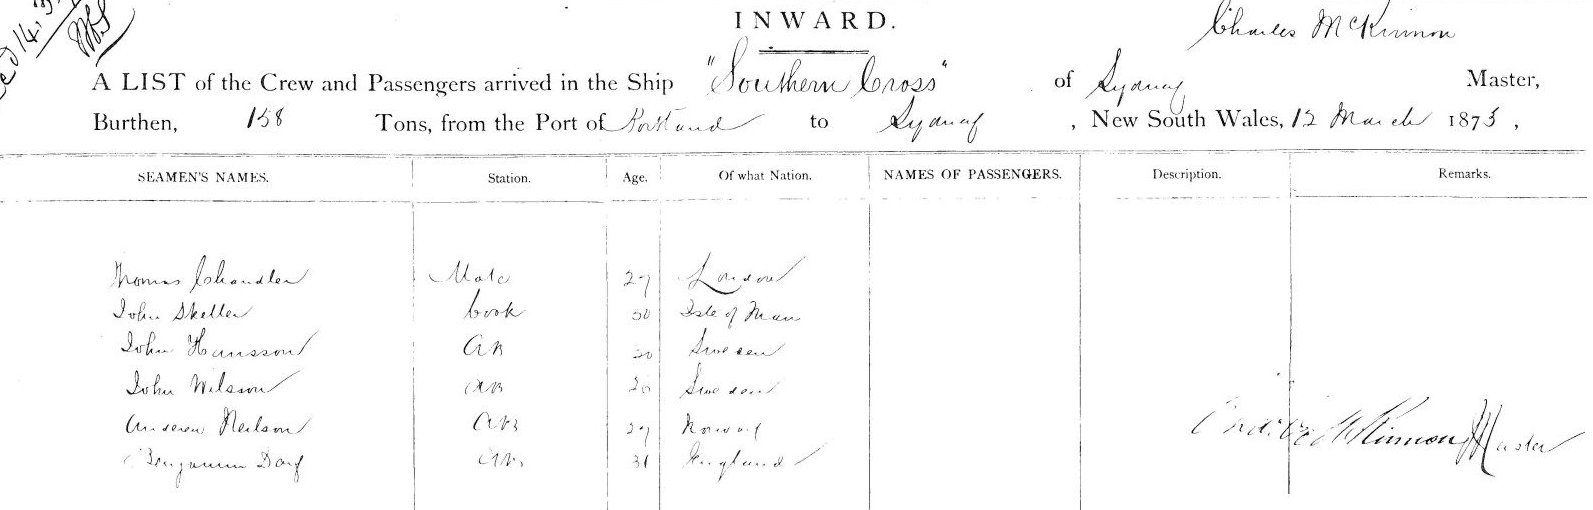 INWARD.
Charles McKinnon
A LIST of the Crew and Passengers arrived in the Ship "Southern Cross" of Sydney Master,
Burthen, 158 Tons, from the Port of to Sydney, New South Wales, 12 March 1873,
SEAMEN'S NAMES. Station. Age. Of what Nation. NAMES OF PASSENGERS. Description. Remarks.
Thomas Chandler Mate 27 London
John Skeller Cook Isle of Man
John Hansson AB 20 Sweden
John Wilsson AB Sweden
Neilson AB 27 Norway
Benjamin AB 31 England
McKinnon Master